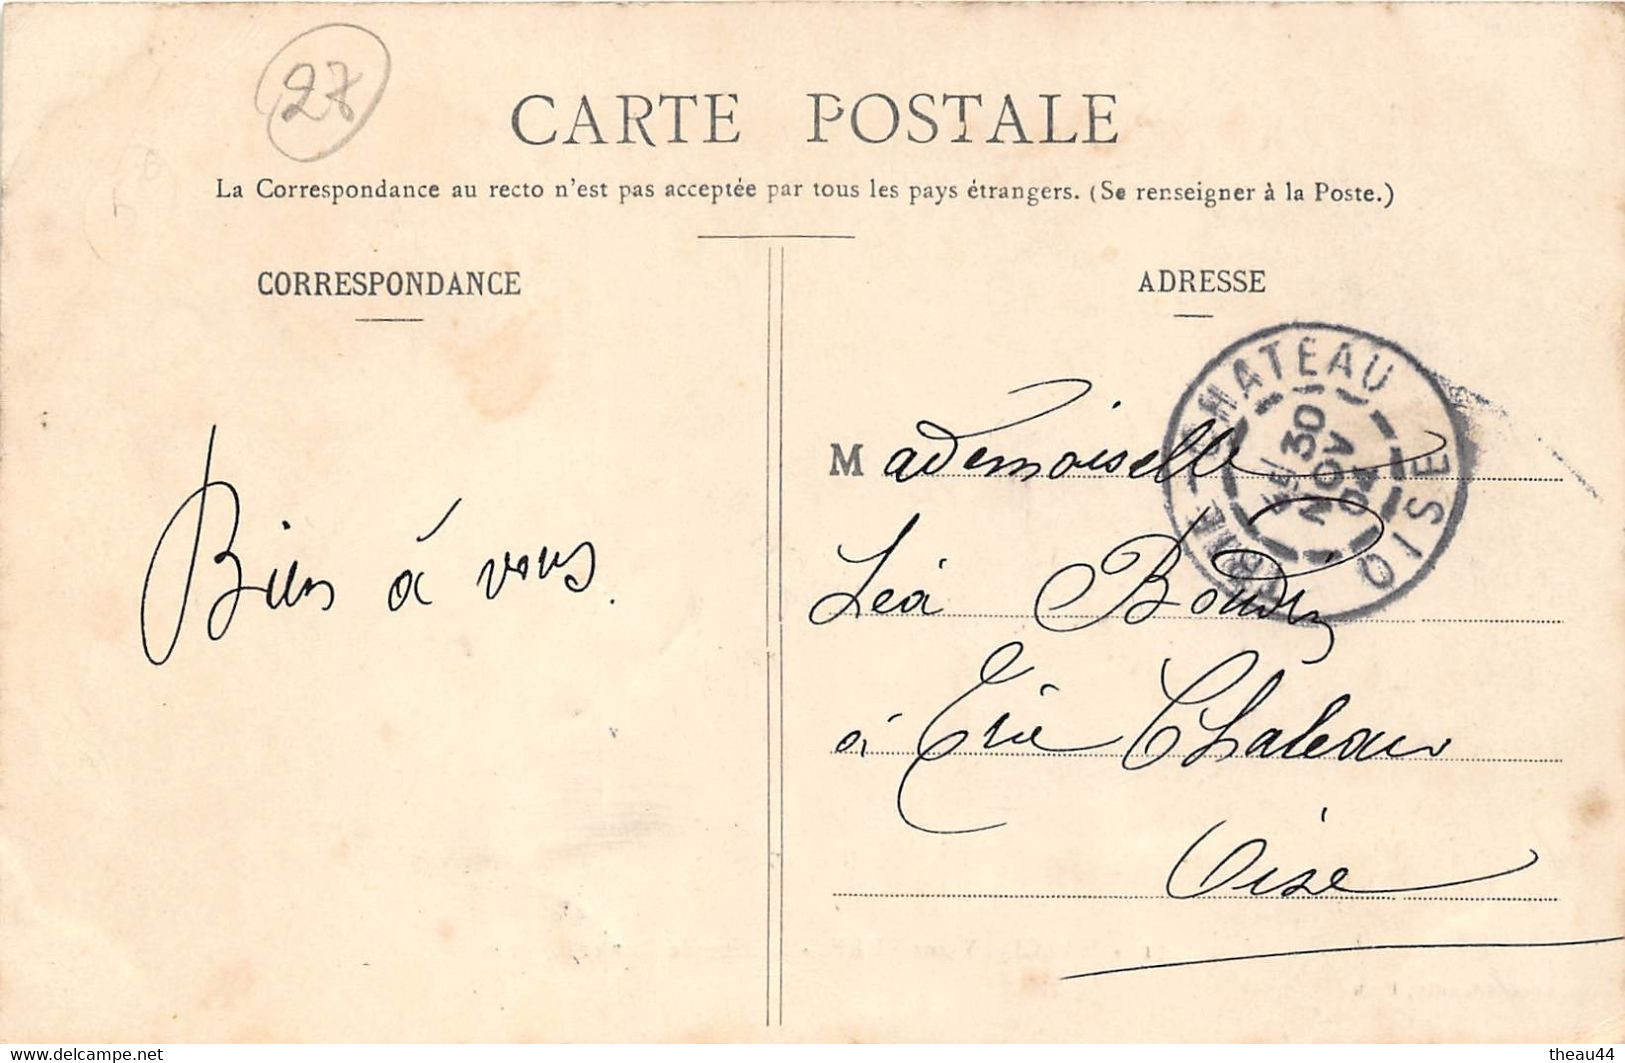 27
CARTE POSTALE
La Correspondance au recto n'est pas acceptée par tous les pays étrangers. (Se renseigner à la Poste.)
CORRESPONDANCE
ADRESSE
CHATEAU
OISE
30
NOV
Mademoiselle
Léa
à Trie Chateau
Oise
Bien à vous.
www.delcampe.net
theau44